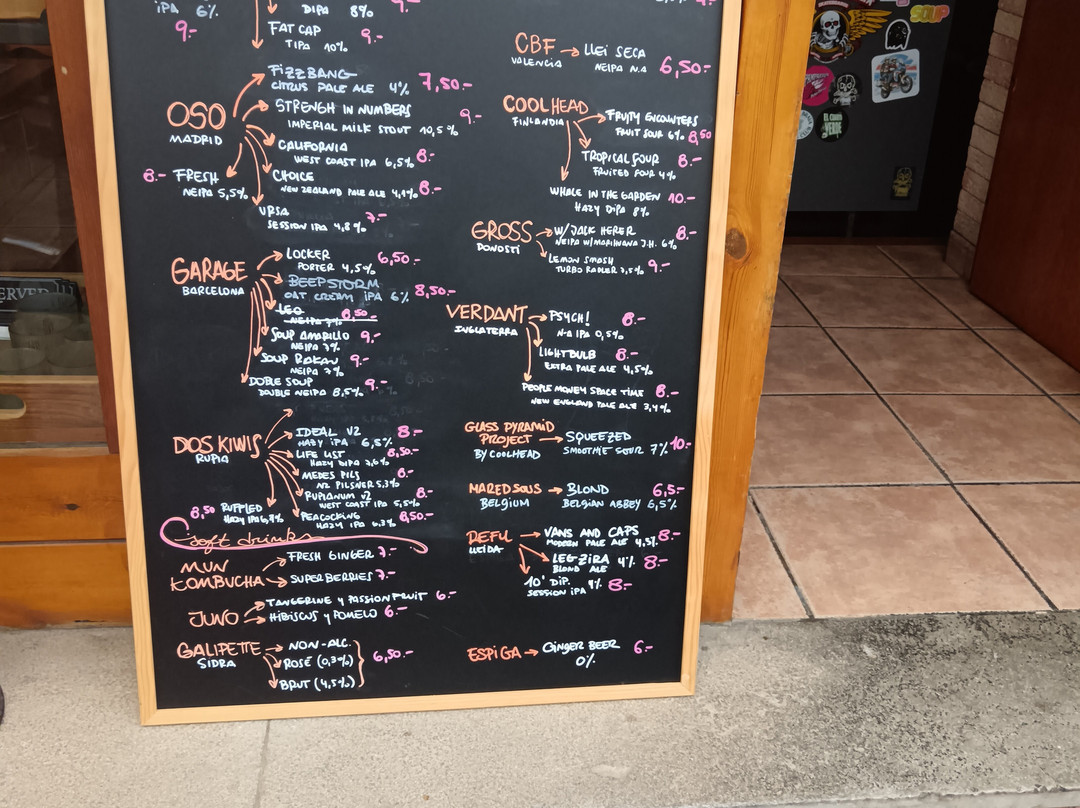 IPA 6%
9.-
DIPA 8%
9.-
FAT CAP
TIPA 10% 9.-
OSO
MADRID
FIZZBANG
CITRUS PALE ALE 4% 7,50.-
STRENGH IN NUMBERS 9.-
IMPERIAL MILK STOUT 10,5%
CALIFORNIA
WEST COAST IPA 6,5% 8.-
8.- FRESH
NEIPA 5,5%
CHOICE
NEW ZEALAND PALE ALE 4,9% 8.-
URSA 7.-
SESSION IPA 4,8%
GARAGE
BARCELONA
LOCKER 6,50.-
PORTER 4,5%
BEEPSTORM
OAT CREAM IPA 6% 8,50.-
LEO 8,50.-
NEIPA 7%
SOUP AMARILLO 9.-
NEIPA 7%
SOUP RAKAU 9.-
NEIPA 7%
DOBLE SOUP 9.-
DOUBLE NEIPA 8,5%
DOS KIWIS
RUPIA
IDEAL V2 8.-
HAZY IPA 6,8%
LIFE LIST 8,50.-
HAZY DIPA 7,6%
MEDES PILS 8.-
NZ PILSNER 5,3%
RUPIANUM V2 8.-
WEST COAST IPA 5,5%
8,50 RUFFLED
HAZY IPA 6,7%
PEACOCKING 8,50.-
HAZY IPA 6,3%
Soft drinks
MUN
KOMBUCHA
FRESH GINGER 7.-
SUPERBERRIES 7.-
JUNO
TANGERINE Y PASSION FRUIT 6.-
HIBISCUS Y POMELO 6.-
GALIPETTE
SIDRA
NON-ALC.
ROSÉ (0,3%) 6,50.-
BRUT (4,5%)
CBF
VALENCIA
LLEI SECA
NEIPA N.A 6,50.-
COOLHEAD
FINLANDIA
FRUITY ENCOUNTERS
FRUIT SOUR 6% 8,50
TROPICAL SOUR 8.-
FRUITED SOUR 4%
WHALE IN THE GARDEN 10.-
HAZY DIPA 8%
GROSS
DONOSTI
W/JACK HERER 8.-
NEIPA W/MARIHUANA J.H. 6%
LEMON SMASH
TURBO RADLER 7,5% 9.-
VERDANT
INGLATERRA
PSYCH! 8.-
N.A IPA 0,5%
LIGHTBULB 8.-
EXTRA PALE ALE 4,5%
PEOPLE MONEY SPACE TIME 8.-
NEW ENGLAND PALE ALE 3,4%
GLASS PYRAMID
PROJECT
BY COOLHEAD
SQUEEZED 10.-
SMOOTHIE SOUR 7%
MAREDSOUS
BELGIUM
BLOND 6,5.-
BELGIAN ABBEY 6,5%
REFU
LLEIDA
VANS AND CAPS 8.-
MODERN PALE ALE 4,5%
LEGZIRA 4% 8.-
BLOND ALE
10' DIP. 4% 8.-
SESSION IPA
ESPIGA
GINGER BEER 6.-
0%
SOUP
VERDE